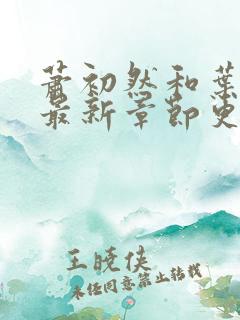 萧初然和葉
最新章節更
王晓侠
未经同意禁止转载